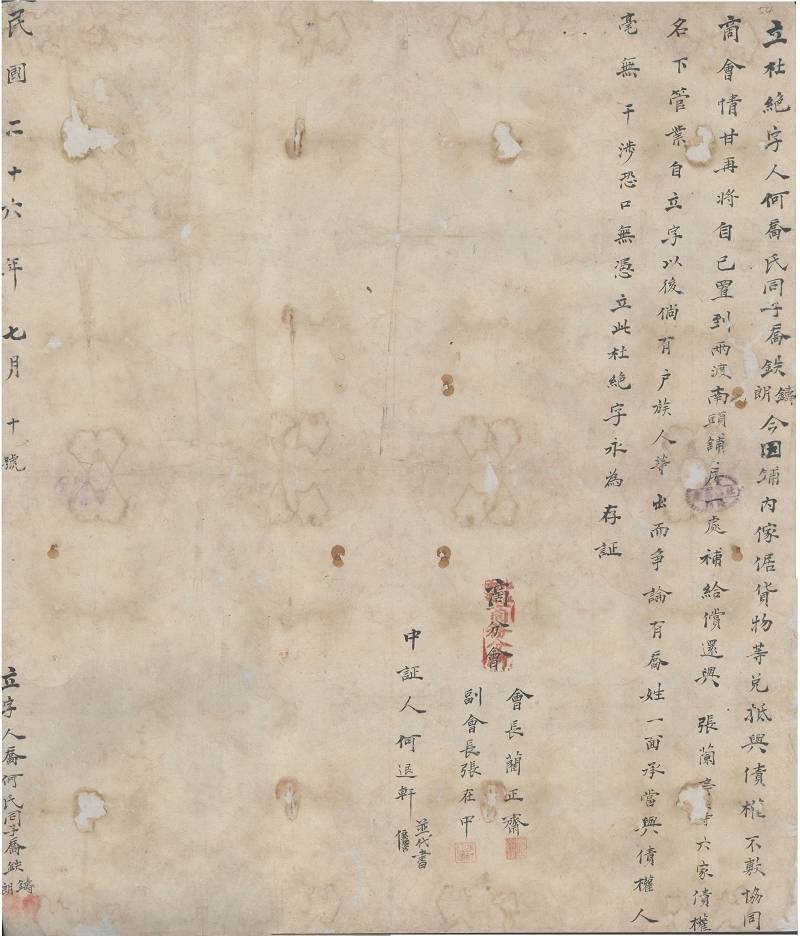 立杜絕字人何喬氏同子喬鉄鑄朗今因鋪內傢倨貨物等兌抵與債權不敷協同
商會情甘再將自己置到兩渡南頭鋪房一處補給償還與張蘭亭等六家債權
名下管業自立字以後倘有戶族人等出而爭論有喬姓一面承當與債權人
毫無干涉恐口無憑立此杜絕字永為存証
商分會
會長藺正濟
副會長張在中
中証人何退軒
並代書
民國二十六年七月十號
立字人喬何氏同子喬鉄鑄朗